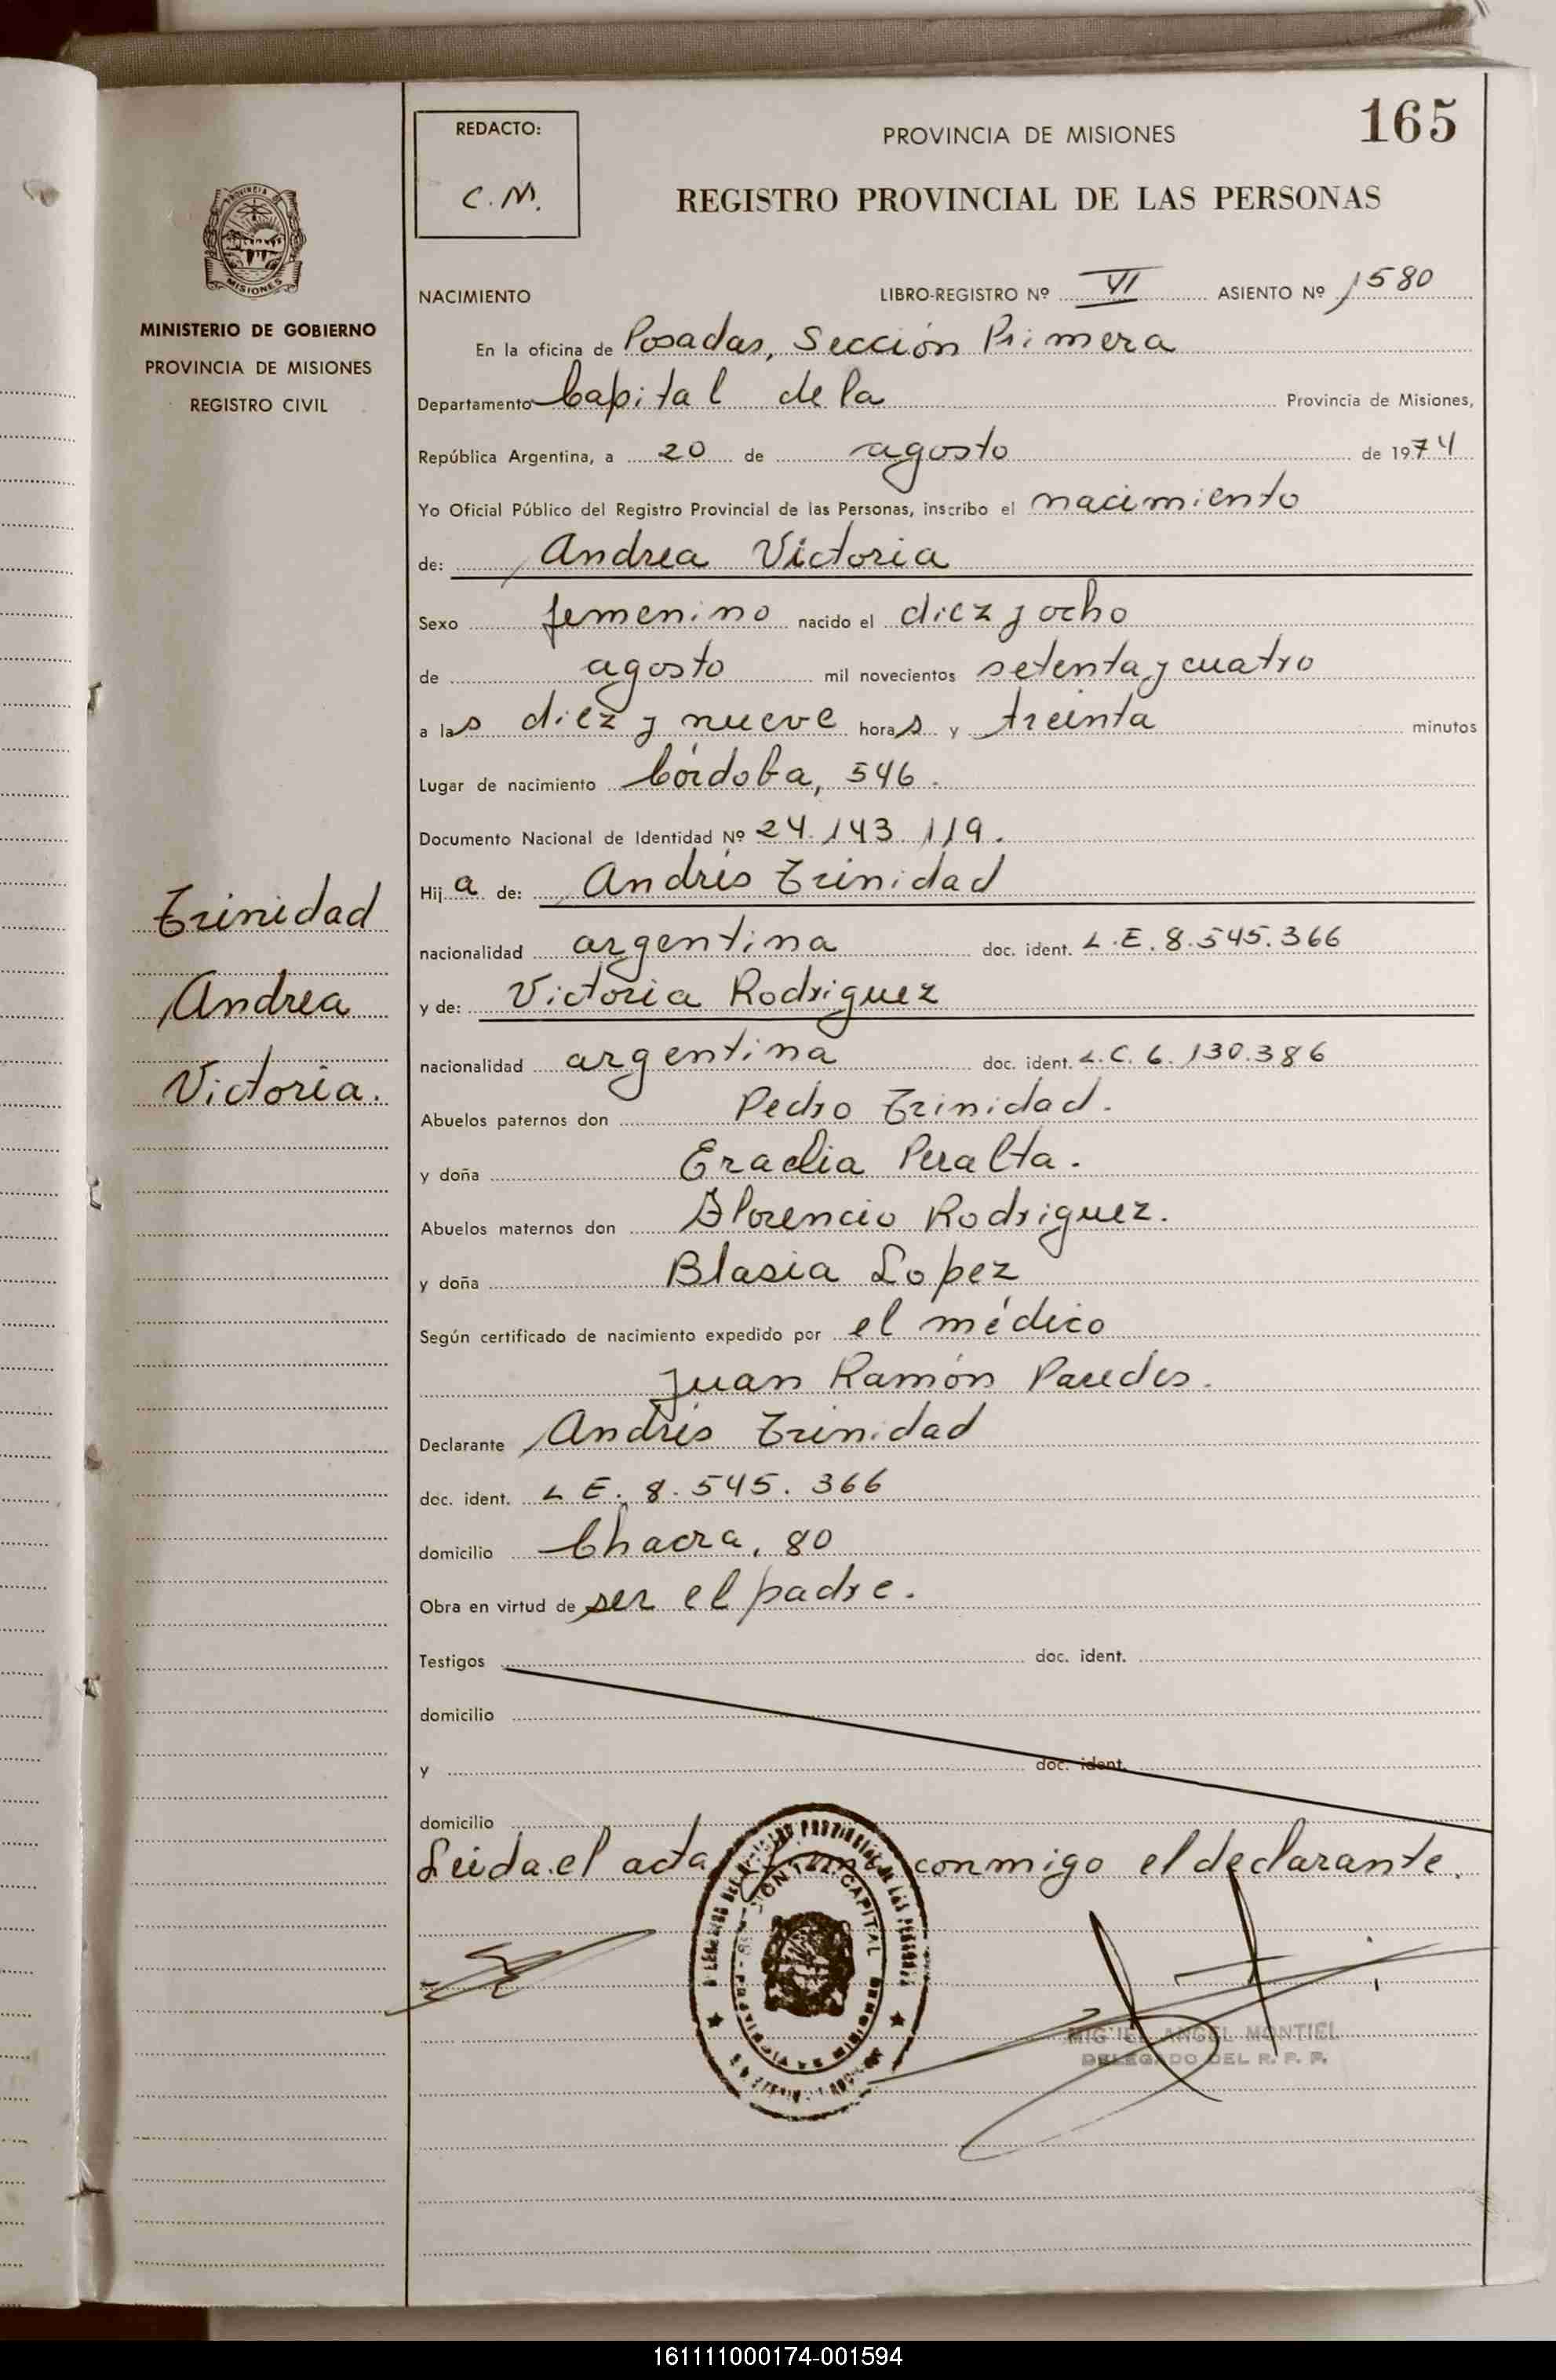 165
REDACTO:
C.M.
PROVINCIA DE MISIONES
REGISTRO PROVINCIAL DE LAS PERSONAS
PROVINCIA
MISIONES
MINISTERIO DE GOBIERNO
PROVINCIA DE MISIONES
REGISTRO CIVIL
NACIMIENTO LIBRO-REGISTRO Nº VI ASIENTO Nº 1580
En la oficina de Posadas, Sección Primera
Departamento Capital de la Provincia de Misiones,
República Argentina, a 20 de agosto de 1974
Yo Oficial Público del Registro Provincial de las Personas, inscribo el nacimiento
de: Andrea Victoria
Sexo femenino nacido el diez y ocho
de agosto mil novecientos setenta y cuatro
a las diez y nueve horas y treinta minutos
Lugar de nacimiento Córdoba, 546.
Documento Nacional de Identidad Nº 24.143.119.
Hija de: Andrés Trinidad
nacionalidad argentina doc. ident. L.E. 8.545.366
y de: Victoria Rodriguez
nacionalidad argentina doc. ident. L.C. 6.130.386
Trinidad
Andrea
Victoria.
Abuelos paternos don Pedro Trinidad.
y doña Eraclia Peralta.
Abuelos maternos don Florencio Rodriguez.
y doña Blasia Lopez
Según certificado de nacimiento expedido por el médico
Juan Ramón Paredes.
Declarante Andrés Trinidad
doc. ident. L.E. 8.545.366
domicilio Chacra, 80
Obra en virtud de ser el padre.
Testigos doc. ident.
domicilio
y doc. ident.
domicilio
Leida el acta conmigo el declarante.
MIGUEL ANGEL MONTIEL
DELEGADO DEL R. P. P.
161111000174-001594